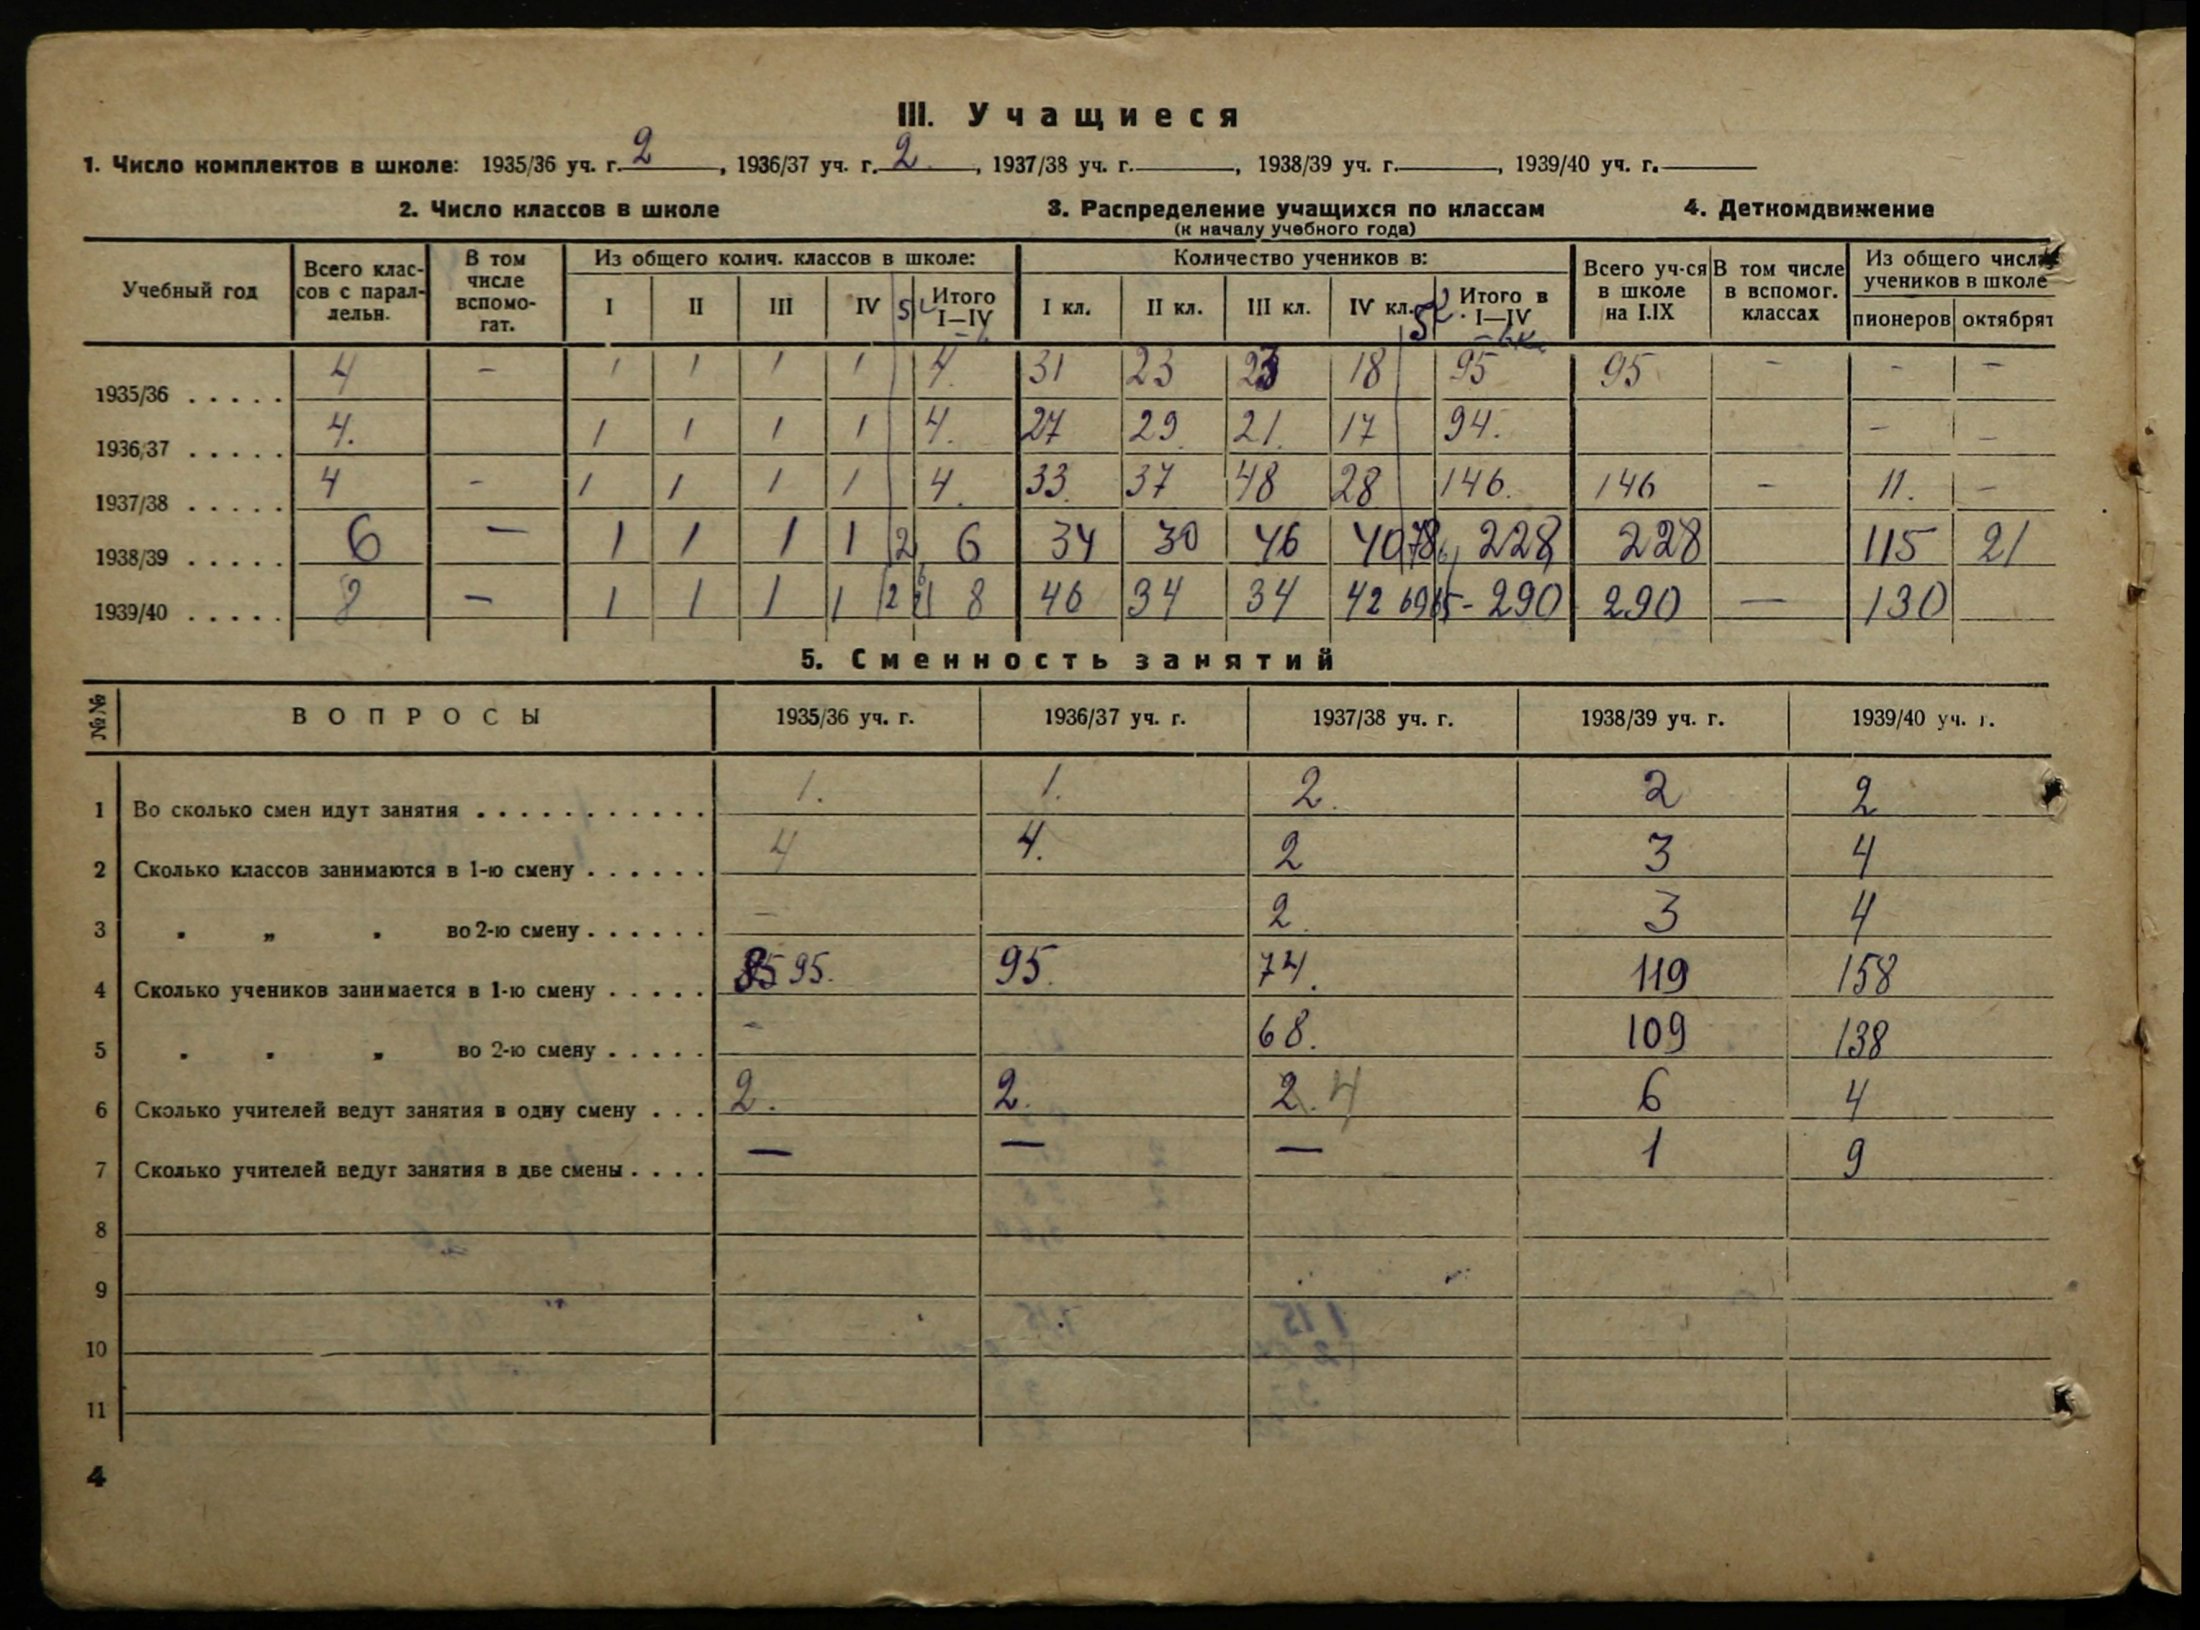 III. Учащиеся
1. Число комплектов в школе: 1935/36 уч. г. 2, 1936/37 уч. г. 2., 1937/38 уч. г. , 1938/39 уч. г. , 1939/40 уч. г.
2. Число классов в школе 3. Распределение учащихся по классам 4. Деткомдвижение
(к началу учебного года)
Учебный год Всего классов с параллельн. В том числе вспомогат. Из общего колич. классов в школе: I II III IV 5 Итого I—IV Количество учеников в: I кл. II кл. III кл. IV кл. 5 Итого в I—IV Всего уч-ся в школе на I.IX В том числе в вспомог. классах Из общего числа учеников в школе пионеров октябрят
1935/36 . . . . . 4 - 1 1 1 1 4. 31 23 23 18 95 95 - - -
1936/37 . . . . . 4. 1 1 1 1 4. 27 29 21 17 94. - -
1937/38 . . . . . 4 - 1 1 1 1 4. 33. 37 48 28 146. 146 - 11. -
1938/39 . . . . . 6 — 1 1 1 1 2 6 34 30 46 40 78 228 228 115 21
1939/40 . . . . . 8 — 1 1 1 1 2 8 46 34 34 42 69 65 - 290 290 — 130
5. Сменность занятий
№№ ВОПРОСЫ 1935/36 уч. г. 1936/37 уч. г. 1937/38 уч. г. 1938/39 уч. г. 1939/40 уч. г.
1 Во сколько смен идут занятия . . . . . . . . . . . 1. 1. 2. 2 2
2 Сколько классов занимаются в 1-ю смену . . . . . . 4 4. 2 3 4
3 „ „ „ во 2-ю смену . . . . . . - 2. 3 4
4 Сколько учеников занимается в 1-ю смену . . . . . 85 95. 95. 74. 119 158
5 „ „ „ во 2-ю смену . . . . . - 68. 109 138
6 Сколько учителей ведут занятия в одну смену . . . 2. 2. 2. 4 6 4
7 Сколько учителей ведут занятия в две смены . . . . — — — 1 9
8
9
10
11
4